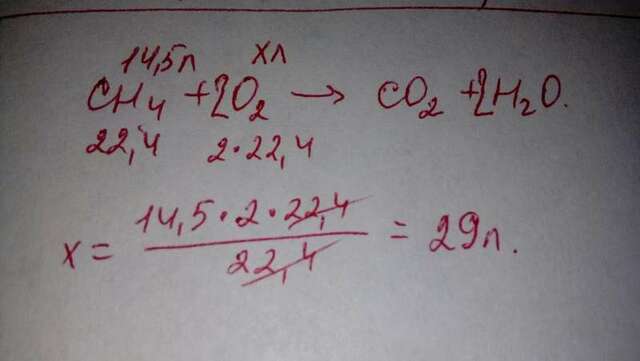 14,5л хл
CH₄ + 2O₂ → CO₂ + 2H₂O.
22,4 2·22,4
x = (14,5·2·22,4)/(22,4) = 29л.